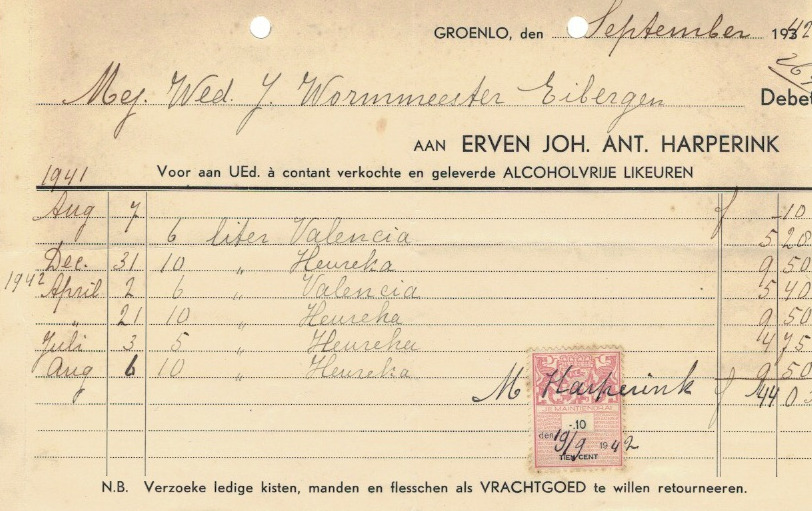 GROENLO, den September 1942
Mej. Wed. J. Wormmeester Eibergen Debet
AAN ERVEN JOH. ANT. HARPERINK
Voor aan UEd. à contant verkochte en geleverde ALCOHOLVRIJE LIKEUREN
1941
Aug 7 f -10
6 liter Valencia 5 20
Dec. 31 10 " Heureka 9 50
1942 April 2 6 " Valencia 5 40
" 21 10 " Heureka 9 50
Juli 3 5 " Heureka 4 75
Aug 6 10 " Heureka 9 50
M Harperink f 44 0
JE MAINTIENDRAI
-.10
den 19/9 1942
TIEN CENT
N.B. Verzoeke ledige kisten, manden en flesschen als VRACHTGOED te willen retourneeren.